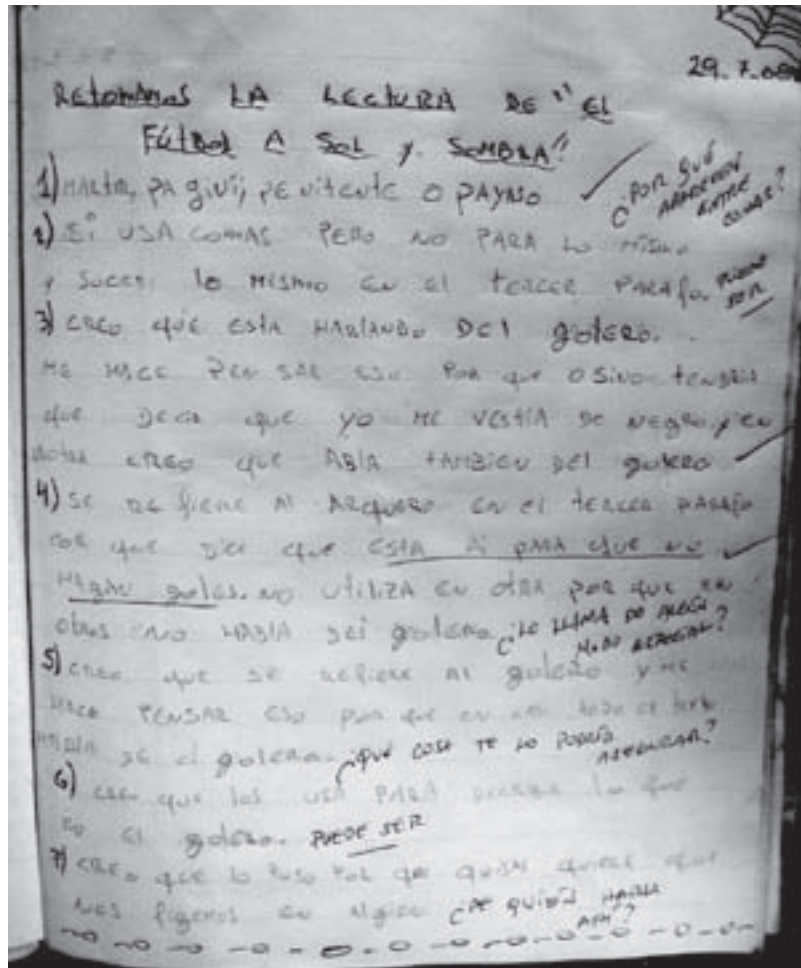 29.7.08
RETOMAMOS LA LECTURA DE "EL
FÚTBOL A SOL y SOMBRA"
1) MARTIR, PAGANI, PENITENTE O PAYASO ¿POR QUÉ APARECEN ENTRE COMAS?
2) SI USA COMAS PERO NO PARA LO MISMO
y SUCEDE lo MISMO EN El TERCER PARAfo. PUEDE SER
3) CREO QUE ESTA HABLANDO DEl golERO.
ME HACE PEN SAR ESO POR que O SINO TENDRIA
que DECIR que yo ME VESTIA DE NEGRO y EN
CREO que ABlA TAMBIEN DEl golERO
4) SE RE fiERE Al ARQUERO EN El TERCER PARAfo
POR que DICE que ESTA AI PARA que NO
HAGAN golES. NO UTiliZA EN OTRA POR que EN
OTRAS NO HABlA DEl golERO ¿LO LLAMA DE ALGÚN MODO ESPECIAL?
5) CREO que SE REfiERE Al golERO y ME
HACE PENSAR ESO POR que EN TODO El
HABlA DE El golERO. ¿QUÉ COSA TE LO PODRÍA ASEGURAR?
6) CREO que las USA PARA lo que
ES El golERO. PUEDE SER
7) CREO que lo PUSO POR que QUIERE que
NOS fiGEMOS EN AlgO ¿DE QUIÉN HABLA AHÍ?